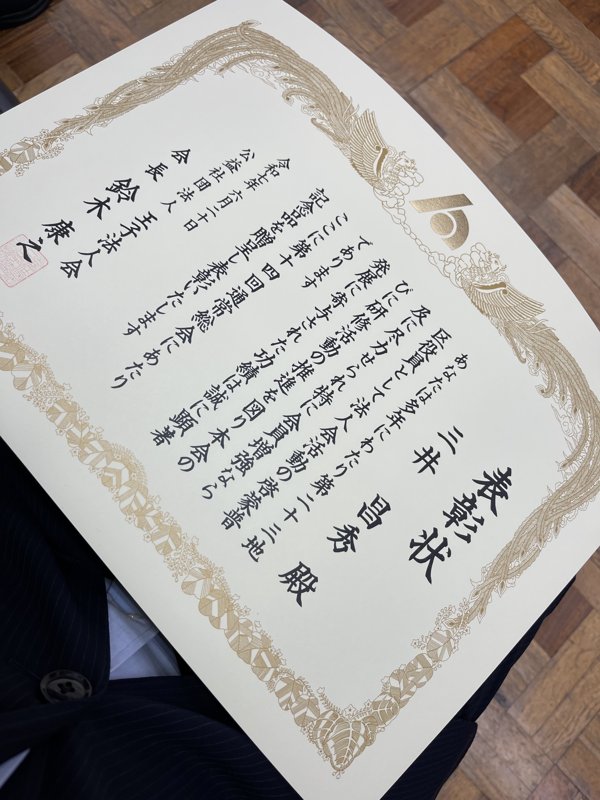 表彰状
三井 昌秀 殿
あなたは多年にわたり第二十三地
区役員として法人会活動の啓蒙普
及に尽力せられ特に会員増強なら
びに研修活動の推進を図り本会の
発展に寄与された功績は誠に顕著
であります
ここに第十四回通常総会にあたり
記念品を贈呈し表彰いたします
令和七年六月二十日
公益社団法人
王子法人会
会長 鈴木 康之